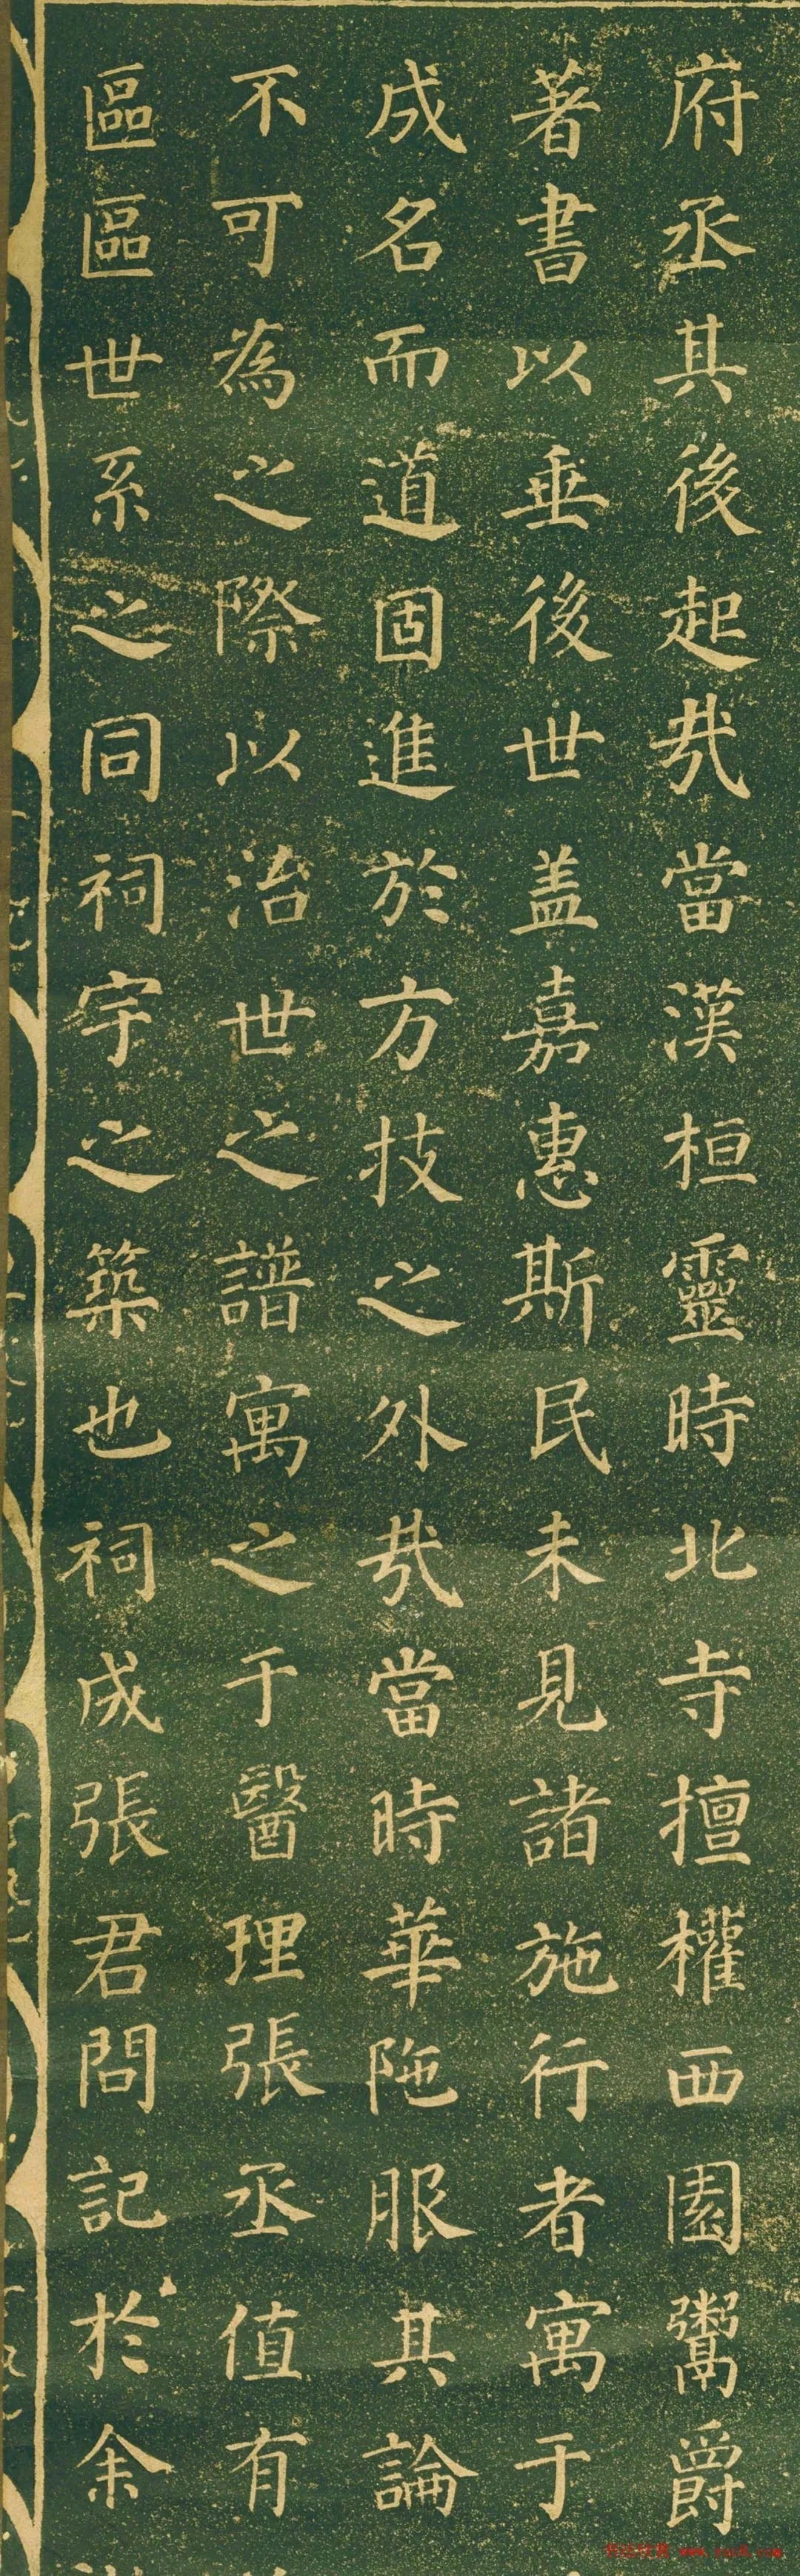 府丞其後起哉當漢桓靈時北寺擅權西園鬻爵
著書以垂後世盖嘉惠斯民未見諸施行者寓于
成名而道固進於方技之外哉當時華陁服其論
不可為之際以治世之譜寓之于醫理張丞值有
區區世系之同祠宇之築也祠成張君問記於余